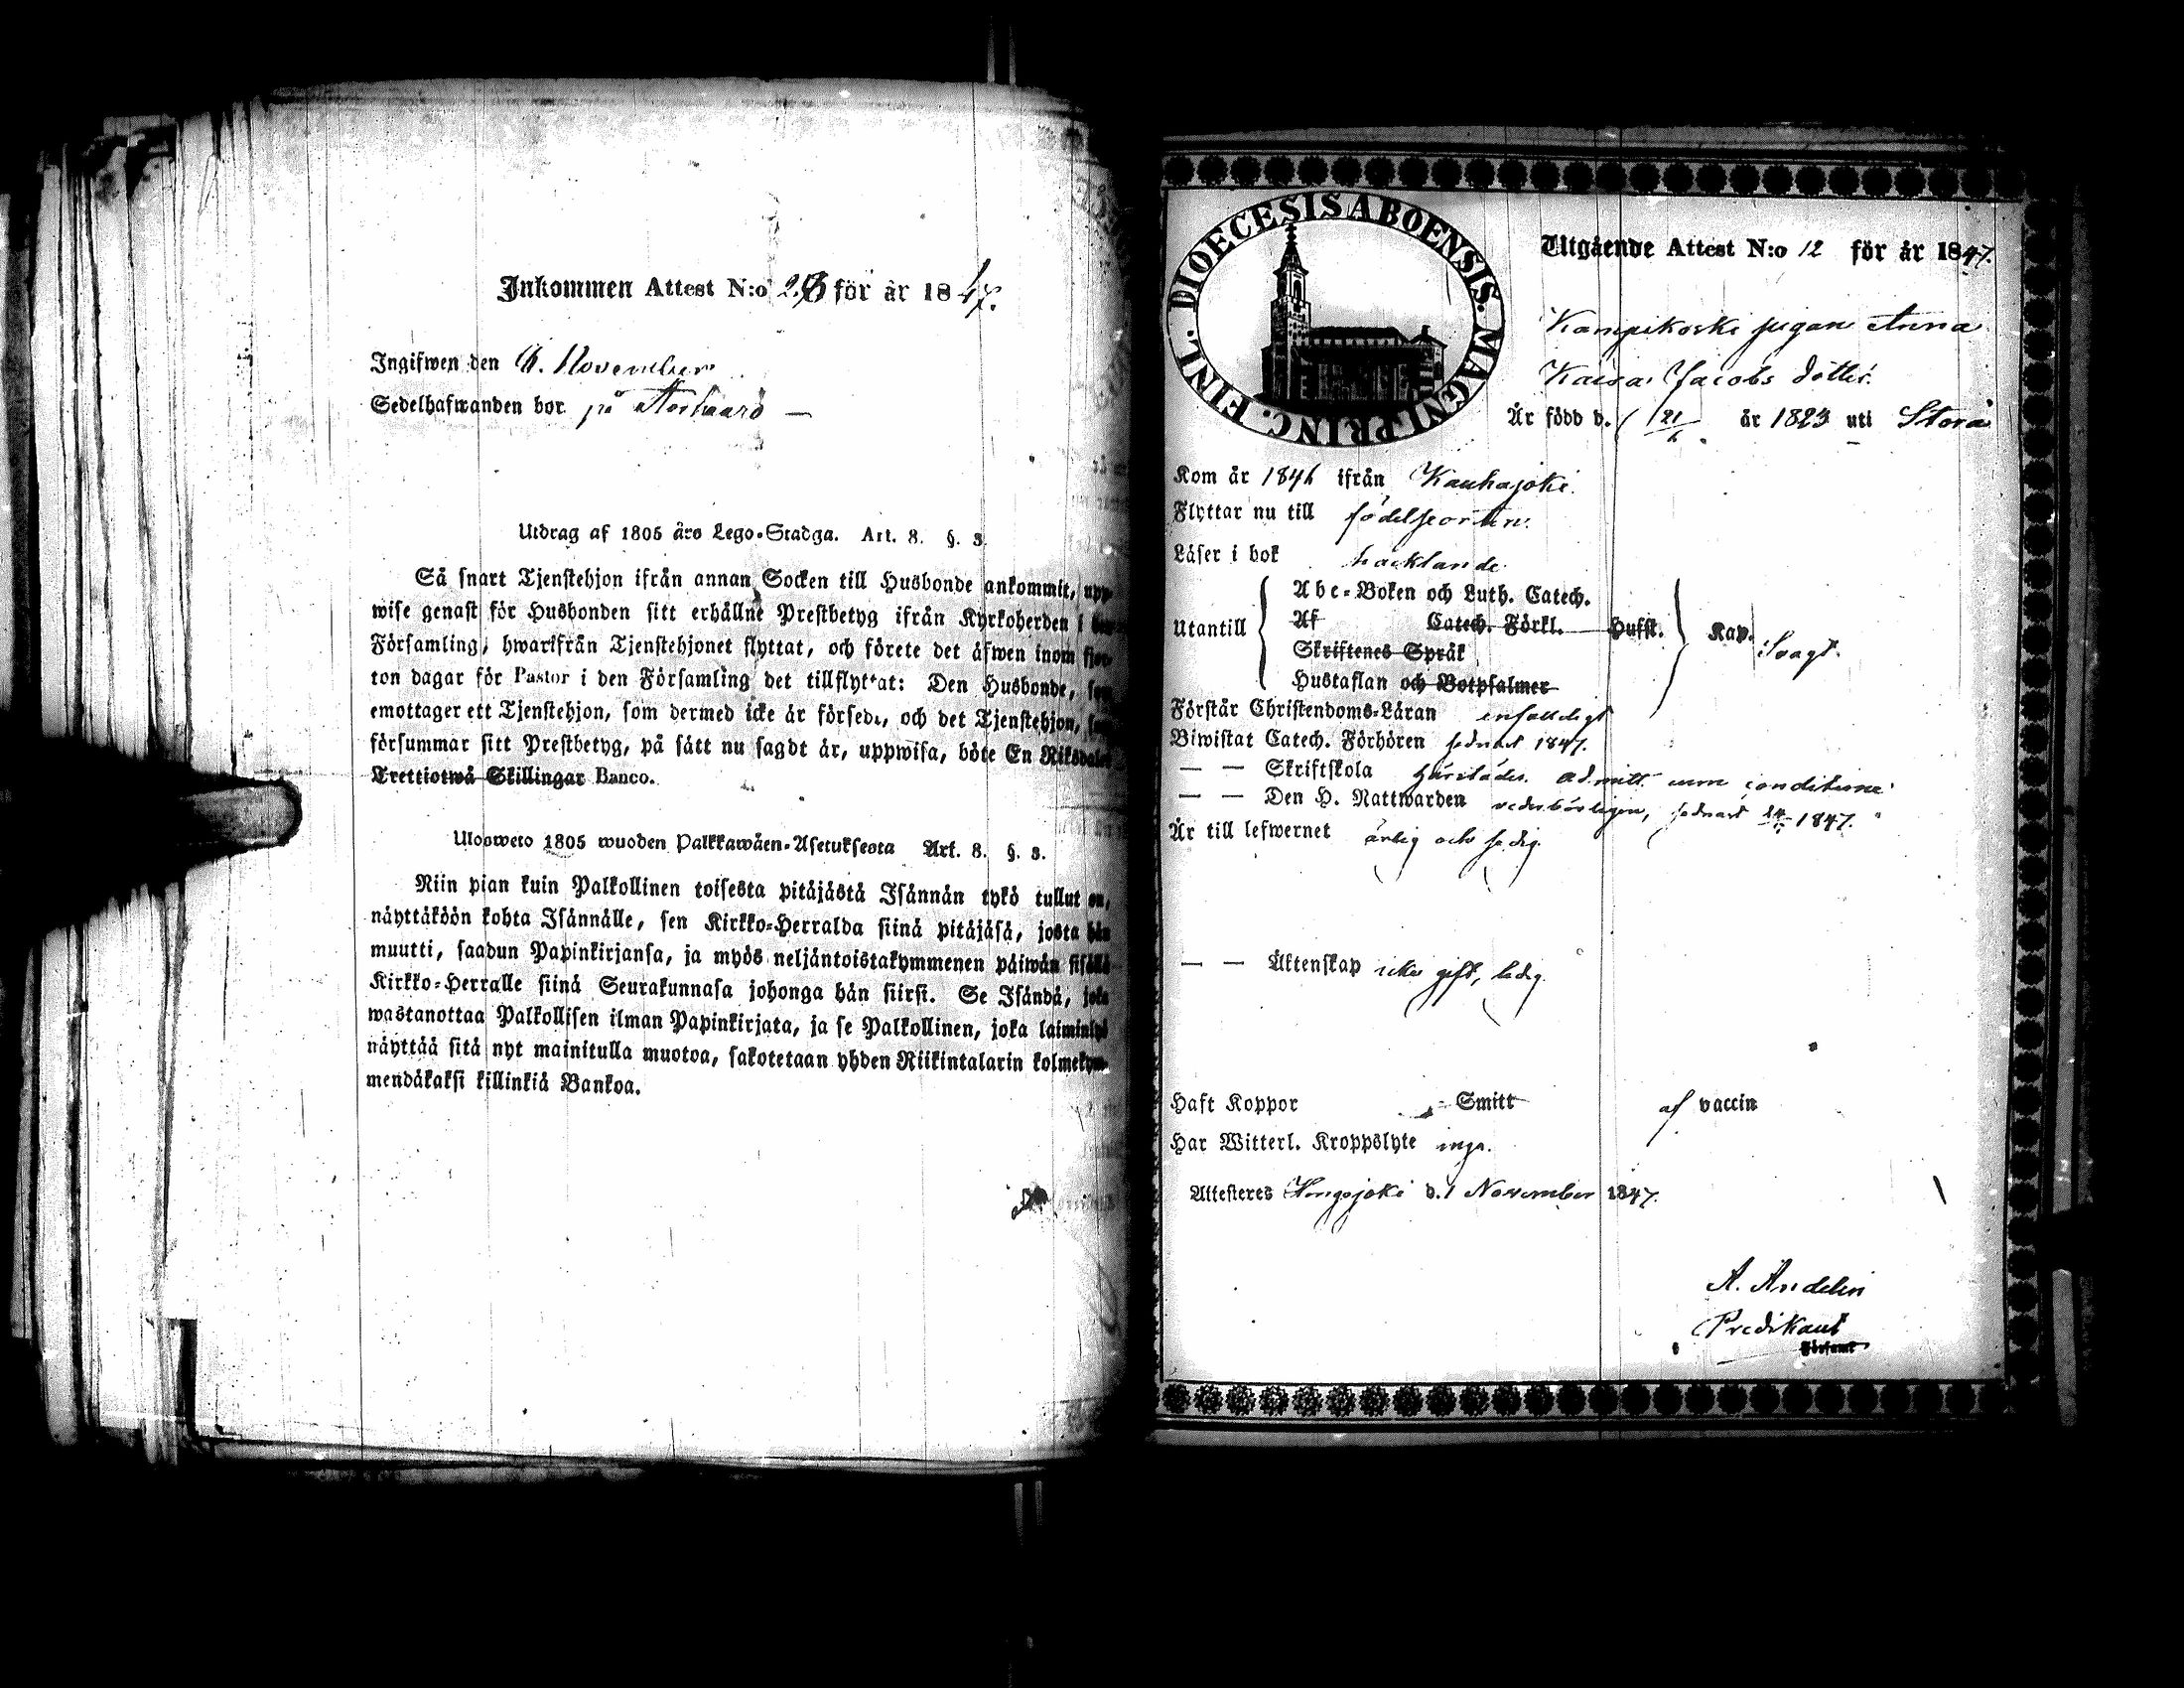 Inkommen Attest N:o 28 för år 1847.
Ingifwen den November
Sedelhafwanden bor på
Utdrag af 1805 års Lego-Stadga. Art. 8. §. 3.
Så snart Tjenstehjon ifrån annan Socken till Husbonde ankommit, upp-
wise genast för Husbonden sitt erhållne Prestbetyg ifrån Kyrkoherden i
Församling, hwarifrån Tjenstehjonet flyttat, och förete det åfwen inom fjor-
ton dagar för Pastor i den Församling det tillflyttat: Den Husbonde, som
emottager ett Tjenstehjon, som dermed icke är försedt, och det Tjenstehjon, som
försummar sitt Prestbetyg, på sätt nu sagdt är, uppwisa, böte En Riksdaler
Trettiotwå Skillingar Banco.
Ulosweto 1805 wuoden Palkkawäen-Asetuksesta Art. 8. §. 3.
Niin pian kuin Palkollinen toisesta pitäjästä Isännän tykö tullut on,
näyttäköön kohta Isännälle, sen Kirkko-Herralda siinä pitäjäsä, josta hän
muutti, saadun Papinkirjansa, ja myös neljäntoistakymmenen päiwän sisällä
Kirkko-Herralle siinä Seurakunnasa johonga hän siirsi. Se Isändä, joka
wastanottaa Palkollisen ilman Papinkirjata, ja se Palkollinen, joka laiminlyö
näyttää sitä nyt mainitulla muotoa, sakotetaan yhden Riikintalarin kolmekym-
mendäkaksi killinkiä Bankoa.
DIOECESIS ABOENSIS. MAGNI. PRINC. FINL.
Utgående Attest N:o 12 för år 1847.
Kampikoski pigan Anna
Kaisa Jacobs dotter.
Är född d. 21/6 år 1823 uti Storå
Kom år 1846 ifrån Kauhajoki.
Flyttar nu till födelseorten.
Läser i bok hacklande
Utantill
Abc-Boken och Luth. Catech.
Af Catech. Förkl. Hufst.
Skriftenes Språk
Hustaflan och Botpsalmer
Kap. Svagt.
Förstår Christendoms-Läran enfaldigt
Biwistat Catech. Förhören sednast 1847.
— — Skriftskola härstädes. admitt. cum conditione
— — Den H. Nattwarden vederbörligen, sednast 1847.
Är till lefwernet ärlig och sedig.
— — Äktenskap icke gift, ledig.
Haft Koppor Smitt af vaccin
Har Witterl. Kroppslyte inga.
Attesteres Hongojoki d. 1 November 1847.
A. Andelin
Predikant
Församl